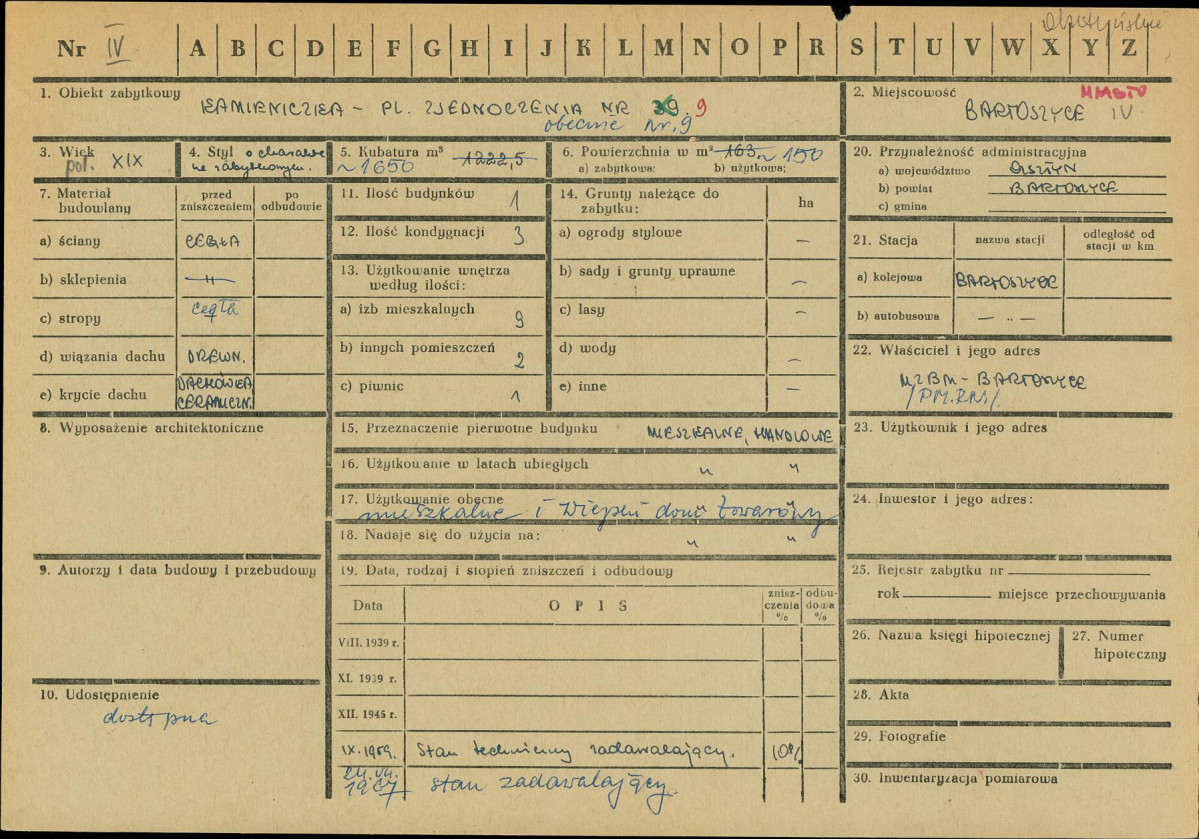 Nr IV A B C D E F G H I J K L M N O P R S T U V W X Y Z
1. Obiekt zabytkowy
KAMIENICZKA - PL. ZJEDNOCZENIA NR 39. 9
obecnie nr. 9
2. Miejscowość MIASTO
BARTOSZYCE IV
3. Wiek
poł. XIX
4. Styl o charakte
rze zabytkowym.
5. Kubatura m³
~1650 1222,5
6. Powierzchnia w m² 163 ~ 150
a) zabytkowa: b) użytkowa:
20. Przynależność administracyjna
a) województwo OLSZTYN
b) powiat BARTOSZYCE
c) gmina
7. Materiał budowlany
przed zniszczeniem
po odbudowie
a) ściany CEGŁA
b) sklepienia —"—
c) stropy cegła
d) wiązania dachu DREWN.
e) krycie dachu DACHÓWKA CERAMICZN.
11. Ilość budynków 1
12. Ilość kondygnacji 3
13. Użytkowanie wnętrza
według ilości:
a) izb mieszkalnych 9
b) innych pomieszczeń 2
c) piwnic 1
14. Grunty należące do
zabytku: ha
a) ogrody stylowe —
b) sady i grunty uprawne —
c) lasy —
d) wody —
e) inne —
21. Stacja
nazwa stacji
odległość od
stacji w km
a) kolejowa BARTOSZYCE
b) autobusowa — „ —
22. Właściciel i jego adres
MZBM - BARTOSZYCE
/PM.RN/.
8. Wyposażenie architektoniczne
15. Przeznaczenie pierwotne budynku MIESZKALNE, HANDLOWE
16. Użytkowanie w latach ubiegłych " "
17. Użytkowanie obecne
mieszkalne i
18. Nadaje się do użycia na: " "
23. Użytkownik i jego adres
24. Inwestor i jego adres:
9. Autorzy i data budowy i przebudowy
19. Data, rodzaj i stopień zniszczeń i odbudowy
Data
O P I S
znisz-
czenia
%
odbu-
dowa
%
VIII. 1939 r.
XI. 1939 r.
XII. 1945 r.
IX. 1959. Stan techniczny zadawalający. 10%
24.VII.
1967 stan zadawalający.
25. Rejestr zabytku nr
rok miejsce przechowywania
26. Nazwa księgi hipotecznej
27. Numer
hipoteczny
10. Udostępnienie
dostępna
28. Akta
29. Fotografie
30. Inwentaryzacja pomiarowa